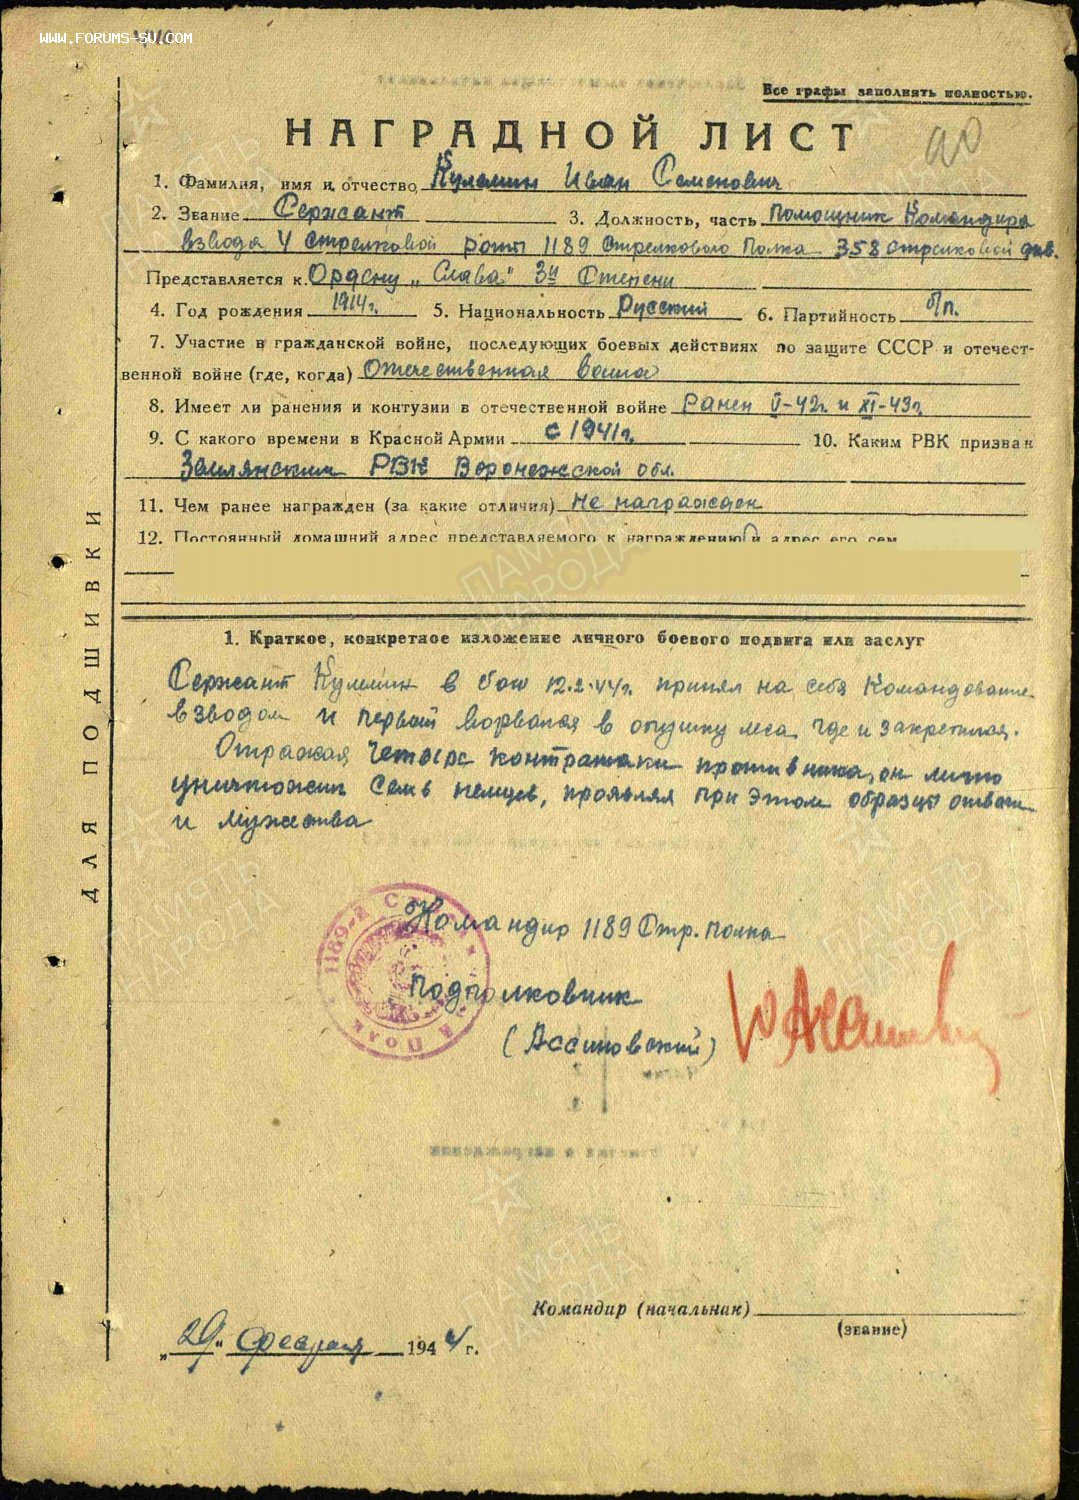 www.forums-su.com
Все графы заполнять полностью.
НАГРАДНОЙ ЛИСТ
1. Фамилия, имя и отчество Кулешин Иван Семенович
2. Звание Сержант 3. Должность, часть Помощник Командира
взвода 4 стрелковой роты 1189 Стрелкового Полка 358 стрелковой див.
Представляется к Ордену „Слава" 3й Степени
4. Год рождения 1914г. 5. Национальность Русский 6. Партийность б/п.
7. Участие в гражданской войне, последующих боевых действиях по защите СССР и отечест-
венной войне (где, когда) Отечественная война
8. Имеет ли ранения и контузии в отечественной войне Ранен V-42г. и XI-43г.
9. С какого времени в Красной Армии с 1941г. 10. Каким РВК призван
Землянским РВК Воронежской обл.
11. Чем ранее награжден (за какие отличия) не награжден
12. Постоянный домашний адрес представляемого к награждению и адрес его сем
1. Краткое, конкретное изложение личного боевого подвига или заслуг
Сержант Кулешин в бою 12.2.44г. принял на себя Командование
взводом и первый ворвался в опушку леса, где и закрепился.
Отражая четыре контратаки противника, он лично
уничтожил семь немцев, проявляя при этом образцы отваги
и мужества
Командир 1189 Стр. полка
Подполковник
(Ассиновский)
1189-й Стрелк
Полк
Командир (начальник)
(звание)
„29" февраля 1944 г.
ДЛЯ ПОДШИВКИ
ПАМЯТЬ НАРОДА